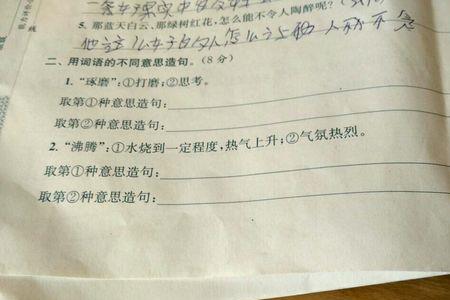 5. 那蓝天白云、那绿树红花,怎么能不令人陶醉呢?
二、用词语的不同意思造句。(8分)
1. “琢磨”:①打磨;②思考。
取第①种意思造句:
取第②种意思造句:
2. “沸腾”:①水烧到一定程度,热气上升;②气氛热烈。
取第①种意思造句:
取第②种意思造句: